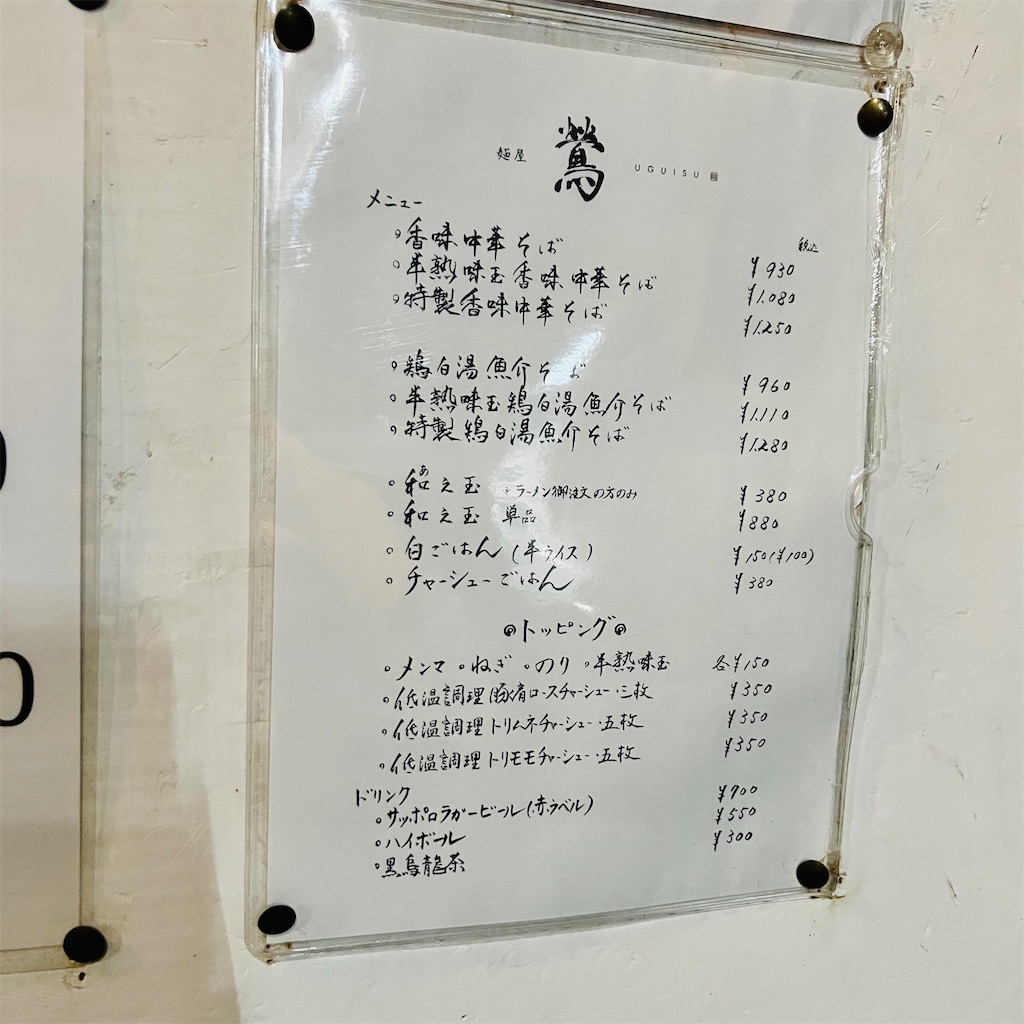 麺屋 鶯 UGUISU
メニュー
税込
香味中華そば ¥930
半熟味玉香味中華そば ¥1.080
特製香味中華そば ¥1.250
鶏白湯魚介そば ¥960
半熟味玉鶏白湯魚介そば ¥1.110
特製鶏白湯魚介そば ¥1.280
和え玉 あ ※ラーメン御注文の方のみ ¥380
和え玉 単品 ¥880
白ごはん(半ライス) ¥150(¥100)
チャーシューごはん ¥380
トッピング
メンマ ねぎ のり 半熟味玉 各¥150
低温調理豚肩ロースチャーシュー・三枚 ¥350
低温調理トリムネチャーシュー・五枚 ¥350
低温調理トリモモチャーシュー・五枚 ¥350
ドリンク
サッポロラガービール(赤ラベル) ¥700
ハイボール ¥550
黒烏龍茶 ¥300
0